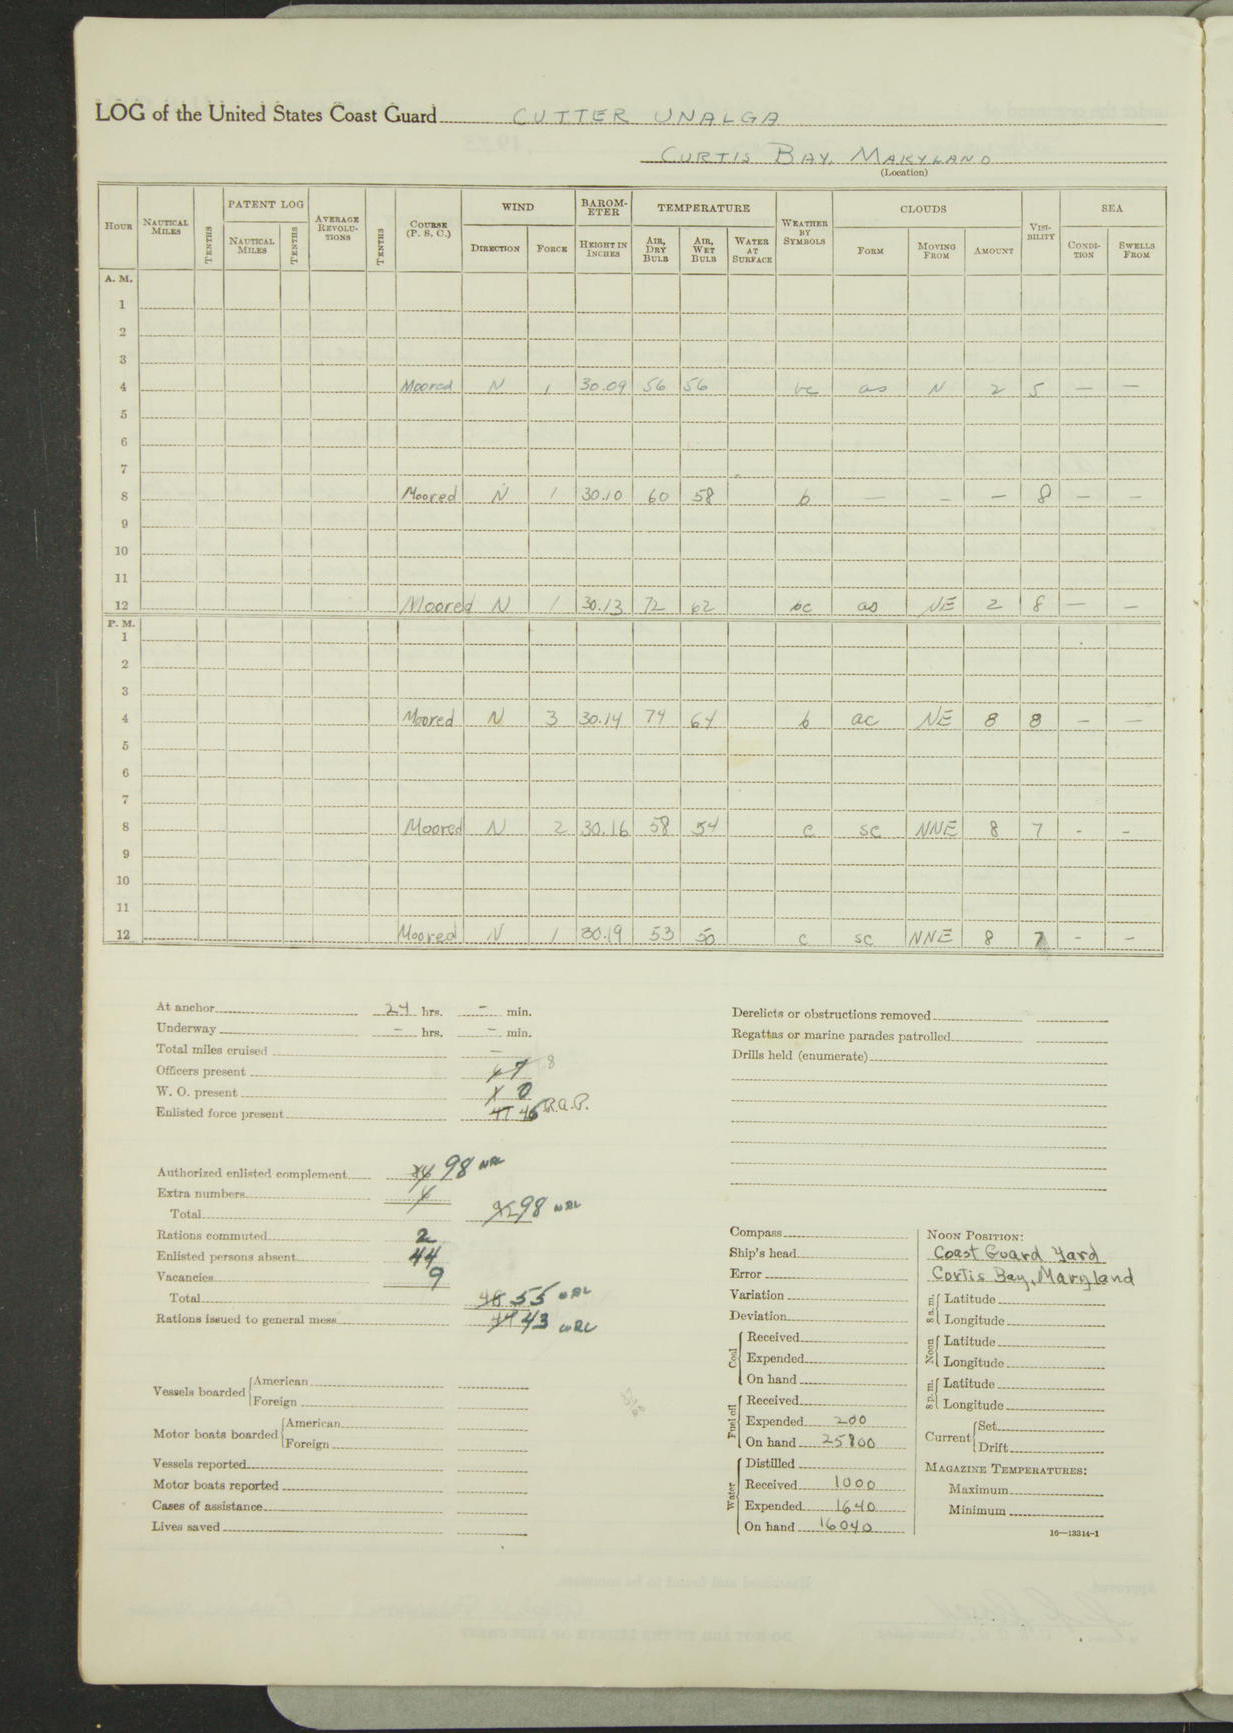 LOG of the United States Coast Guard CUTTER UNALGA
CURTIS BAY, MARYLAND
(Location)
HOUR NAUTICAL MILES TENTHS PATENT LOG NAUTICAL MILES TENTHS AVERAGE REVOLUTIONS TENTHS COURSE (P. S. C.) WIND DIRECTION FORCE BAROMETER HEIGHT IN INCHES TEMPERATURE AIR, DRY BULB AIR, WET BULB WATER AT SURFACE WEATHER BY SYMBOLS CLOUDS FORM MOVING FROM AMOUNT VISIBILITY SEA CONDITION SWELLS FROM
A. M.
1
2
3
4 Moored N 1 30.09 56 56 bc as N 2 5 — —
5
6
7
8 Moored N 1 30.10 60 58 b — — — 8 — —
9
10
11
12 Moored N 1 30.13 72 62 bc as NE 2 8 — —
P. M.
1
2
3
4 Moored N 3 30.14 74 64 b ac NE 8 8 — —
5
6
7
8 Moored N 2 30.16 58 54 c sc NNE 8 7 - -
9
10
11
12 Moored N 1 30.19 53 50 c sc NNE 8 7 - -
At anchor 24 hrs. - min.
Underway - hrs. - min.
Total miles cruised —
Officers present 7 8
W. O. present 0
Enlisted force present 47 46 R.A.P.
Authorized enlisted complement 98 WRL
Extra numbers 4
Total 98 WRL
Rations commuted 2
Enlisted persons absent 44
Vacancies 9
Total 55 WRL
Rations issued to general mess 43 WRL
Vessels boarded American
Foreign
Motor boats boarded American
Foreign
Vessels reported
Motor boats reported
Cases of assistance
Lives saved
Derelicts or obstructions removed
Regattas or marine parades patrolled
Drills held (enumerate)
Compass
Ship's head
Error
Variation
Deviation
Coal Received
Expended
On hand
Fuel oil Received
Expended 200
On hand 25800
Water Distilled
Received 1000
Expended 1640
On hand 16040
NOON POSITION:
Coast Guard Yard
Curtis Bay, Maryland
8 a. m. Latitude
Longitude
Noon Latitude
Longitude
8 p. m. Latitude
Longitude
Current Set
Drift
MAGAZINE TEMPERATURES:
Maximum
Minimum
16—13314-1